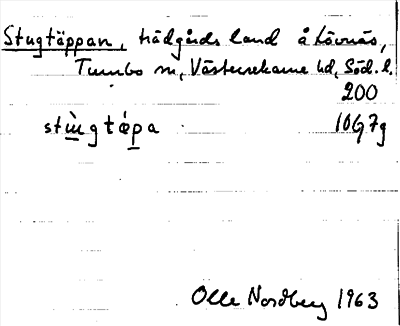 Stugtäppan, trädgårdsland å Lövnäs,
Tumbo sn, Västerrekarne hd, Söd. l.
200
stùgtǽpa 10G7g
Olle Nordberg 1963